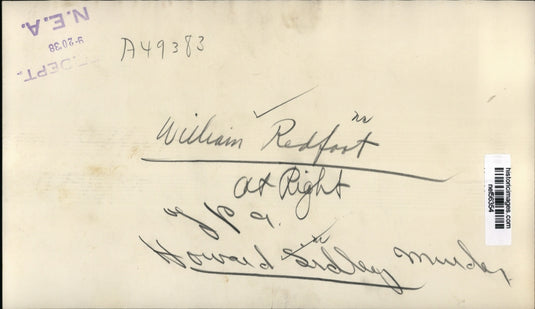 N.E.A.
9-20 38
DEPT.
A49383
William Redfoot
at Right
Howard Murder
historicimages.com
nef56354